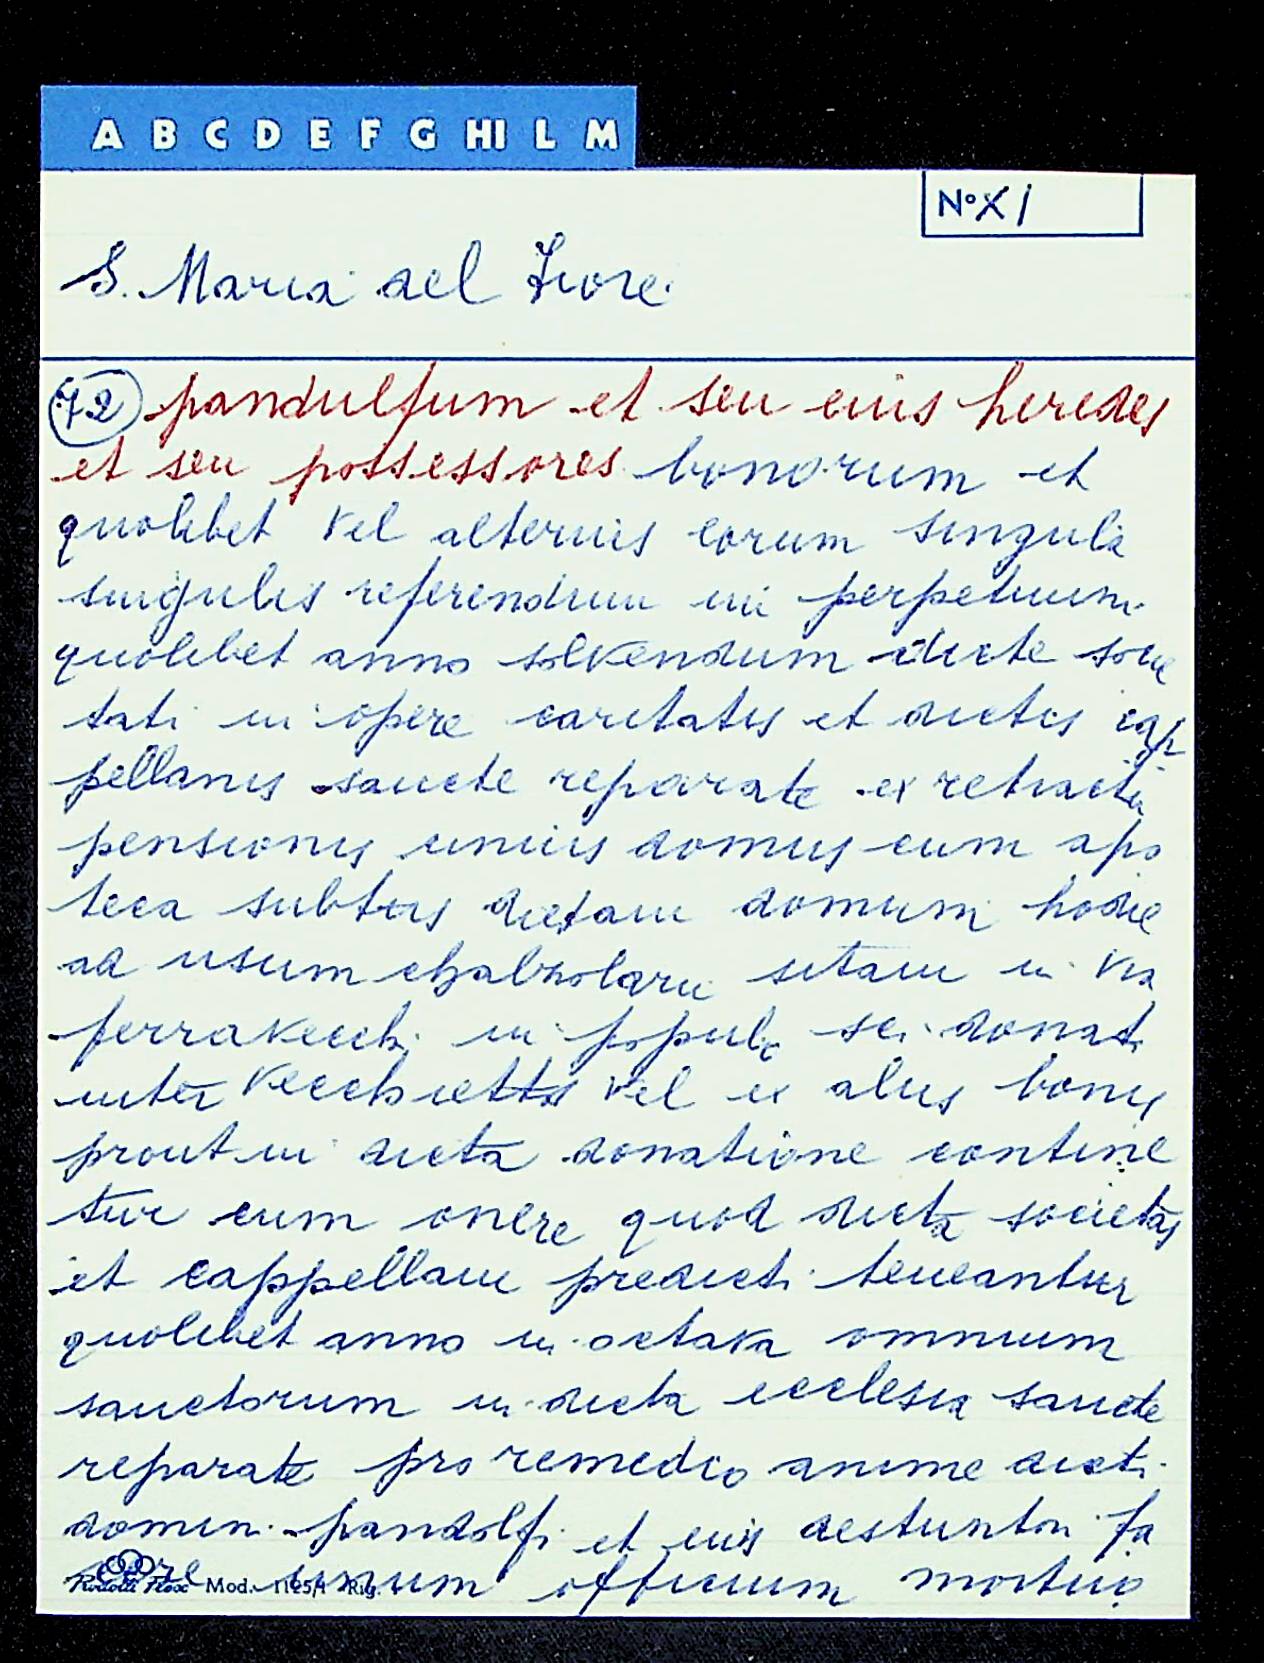 A B C D E F G HI L M
N° XI
S. Maria del Fiore
72 pandulfum et seu eius heredes
et seu possessores bonorum et
quolibet vel alterius eorum singula
singulis referendum in perpetuum
quolibet anno solvendum dicte socie
tati in opere caritatis et dictis cap
pellanis sancte reparate ex
pensionis unius domus cum apo
teca subtus dictam domum hodie
ad usum sitam in via
ferravecchi in populo sci donati
inter vecchietts vel ex aliis bonis
prout in dicta donatione contine
tur cum onere quod dicta societas
et cappellani predicti teneantur
quolibet anno in octava omnium
sanctorum in dicta ecclesia sancte
reparate pro remedio anime dicti
domin pandolfi et eius fa
cere unum officium mortuo
Mod. Rig.